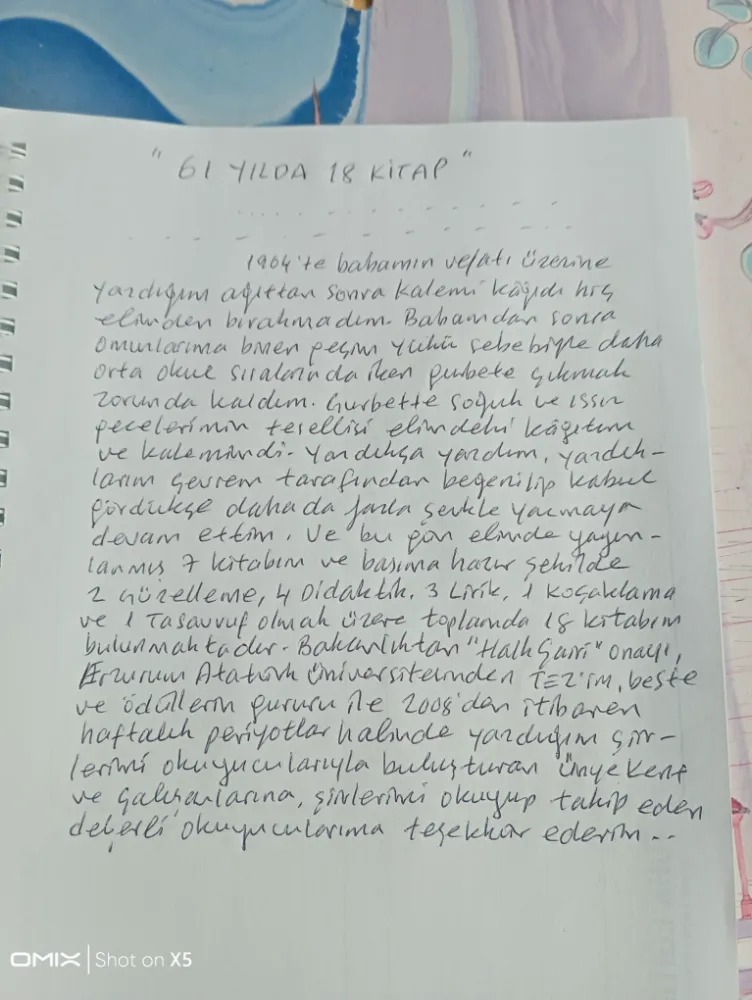 " 61 YILDA 18 KİTAP "
1964'te babamın vefatı üzerine
yazdığım ağıttan sonra kalemi kâğıdı hiç
elimden bırakmadım. Babamdan sonra
omuzlarıma binen geçim yükü sebebiyle daha
orta okul sıralarında iken gurbete çıkmak
zorunda kaldım. Gurbette soğuk ve ıssız
gecelerimin tesellisi elimdeki kâğıtım
ve kalemimdi. Yazdıkça yazdım, yazdık-
larım çevrem tarafından beğenilip kabul
gördükçe daha da fazla şevkle yazmaya
devam ettim. Ve bu gün elimde yayın-
lanmış 7 kitabım ve basıma hazır şekilde
2 Güzelleme, 4 Didaktik, 3 Lirik, 1 Koçaklama
ve 1 Tasavvuf olmak üzere toplamda 18 kitabım
bulunmaktadır. Bakanlıktan "Halk Şairi" onayı,
Erzurum Atatürk Üniversitesinden TEZ'im, beste
ve ödüllerin gururu ile 2008'den itibaren
haftalık periyotlar halinde yazdığım şiir-
lerimi okuyucularıyla buluşturan Ünye Kent
ve çalışanlarına, şiirlerimi okuyup takip eden
değerli okuyucularıma teşekkür ederim...
OMIX | Shot on X5